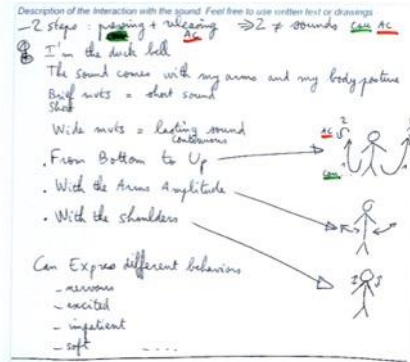 Description of the Interaction with the sound. Feel free to use written text or drawings
- 2 steps : pressing + releasing ⇒ 2 ≠ sounds Cou AC
AC
I'm in the duck bell
The sound comes with my arms and my body posture
Brief mvts = short sound
Short
Wide mvts = lasting sound
continuous
. From Bottom to Up
AC 2 2
Cou 1 1
. With the Arms Amplitude
. With the shoulders
Can Express different behaviors
- nervous
- excited
- impatient
- soft ....